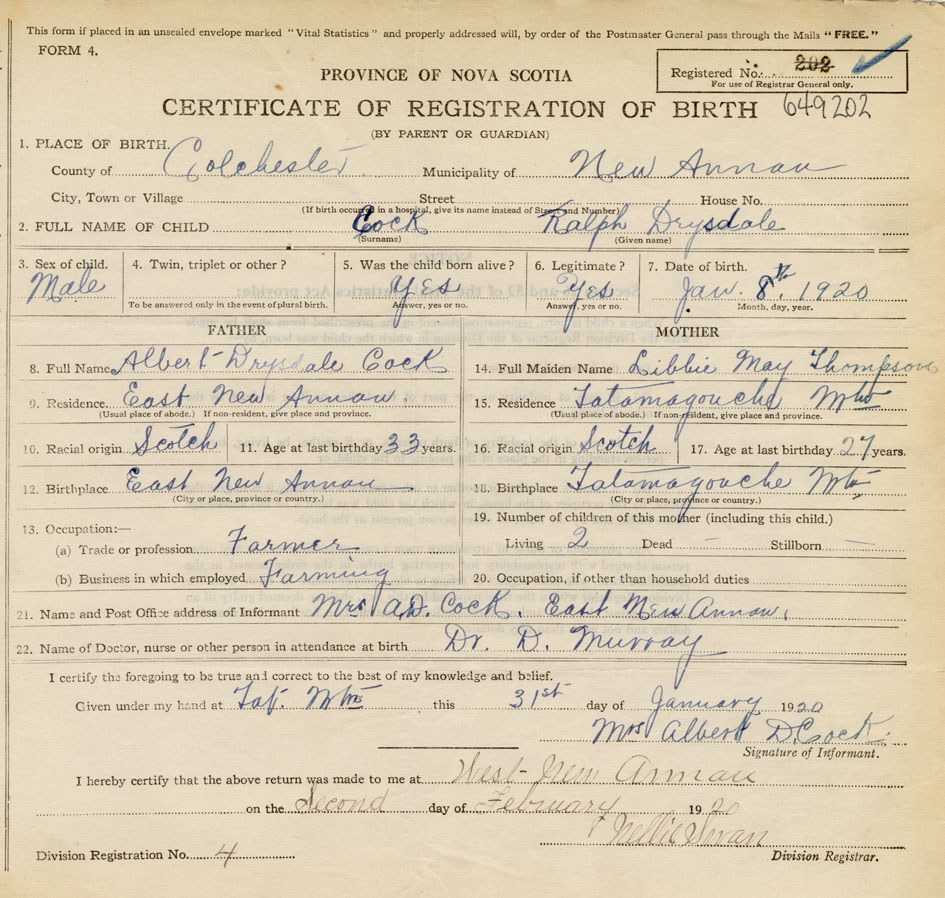 This form if placed in an unsealed envelope marked "Vital Statistics" and properly addressed will, by order of the Postmaster General pass through the Mails "FREE."
FORM 4.
Registered No. 202
For use of Registrar General only.
PROVINCE OF NOVA SCOTIA
CERTIFICATE OF REGISTRATION OF BIRTH 649202
(BY PARENT OR GUARDIAN)
1. PLACE OF BIRTH.
County of Colchester Municipality of New Annan
City, Town or Village Street House No.
(If birth occurred in a hospital, give its name instead of Street and Number)
2. FULL NAME OF CHILD Cock Ralph Drysdale
(Surname) (Given name)
3. Sex of child. 4. Twin, triplet or other? 5. Was the child born alive? 6. Legitimate? 7. Date of birth.
Male Yes Yes Jan. 8th, 1920
To be answered only in the event of plural birth. Answer, yes or no. Answer, yes or no. Month, day, year.
FATHER MOTHER
8. Full Name Albert Drysdale Cock 14. Full Maiden Name Libbie May Thompson
9. Residence East New Annan 15. Residence Tatamagouche Mtn
(Usual place of abode.) If non-resident, give place and province. (Usual place of abode.) If non-resident, give place and province.
10. Racial origin Scotch 11. Age at last birthday 33 years. 16. Racial origin Scotch 17. Age at last birthday 27 years.
12. Birthplace East New Annan 18. Birthplace Tatamagouche Mtn
(City or place, province or country.) (City or place, province or country.)
13. Occupation:— 19. Number of children of this mother (including this child.)
(a) Trade or profession. Farmer Living 2 Dead – Stillborn —
(b) Business in which employed Farming 20. Occupation, if other than household duties
21. Name and Post Office address of Informant Mrs A.D. Cock. East New Annan.
22. Name of Doctor, nurse or other person in attendance at birth Dr. D. Murray
I certify the foregoing to be true and correct to the best of my knowledge and belief.
Given under my hand at Tat. Mtn this 31st day of January 1920
Mrs Albert D. Cock.
Signature of Informant.
I hereby certify that the above return was made to me at West New Annan
on the Second day of February 1920
Nellie Swan
Division Registration No. 4 Division Registrar.